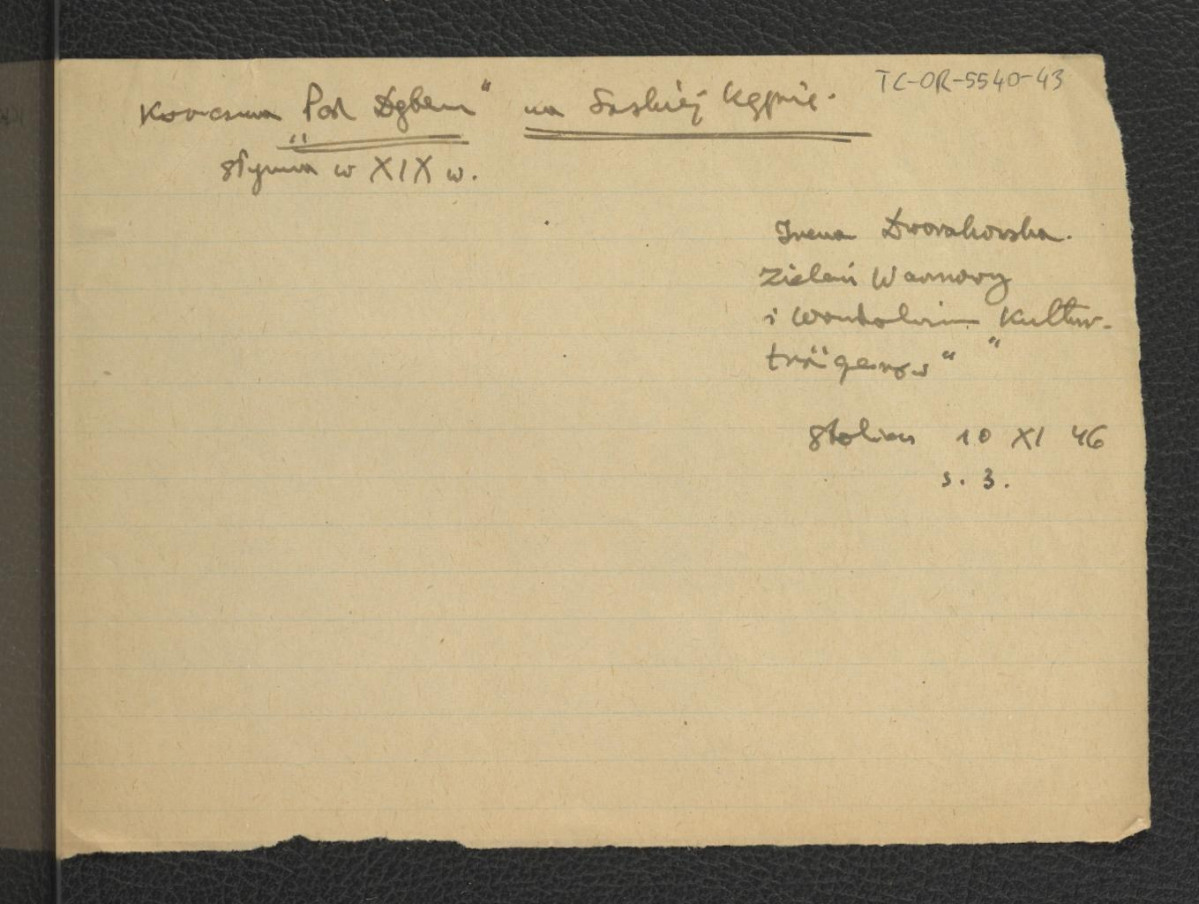 TC-OR-5540-43
Karczma "Pod Dębem" na Saskiej Kępie.
słynna w XIX w.
Irena Dworakowska.
Zieleń Warszawy
i wandalizm "Kultur-
trägerów"
Stolica 10 XI 46
s. 3.